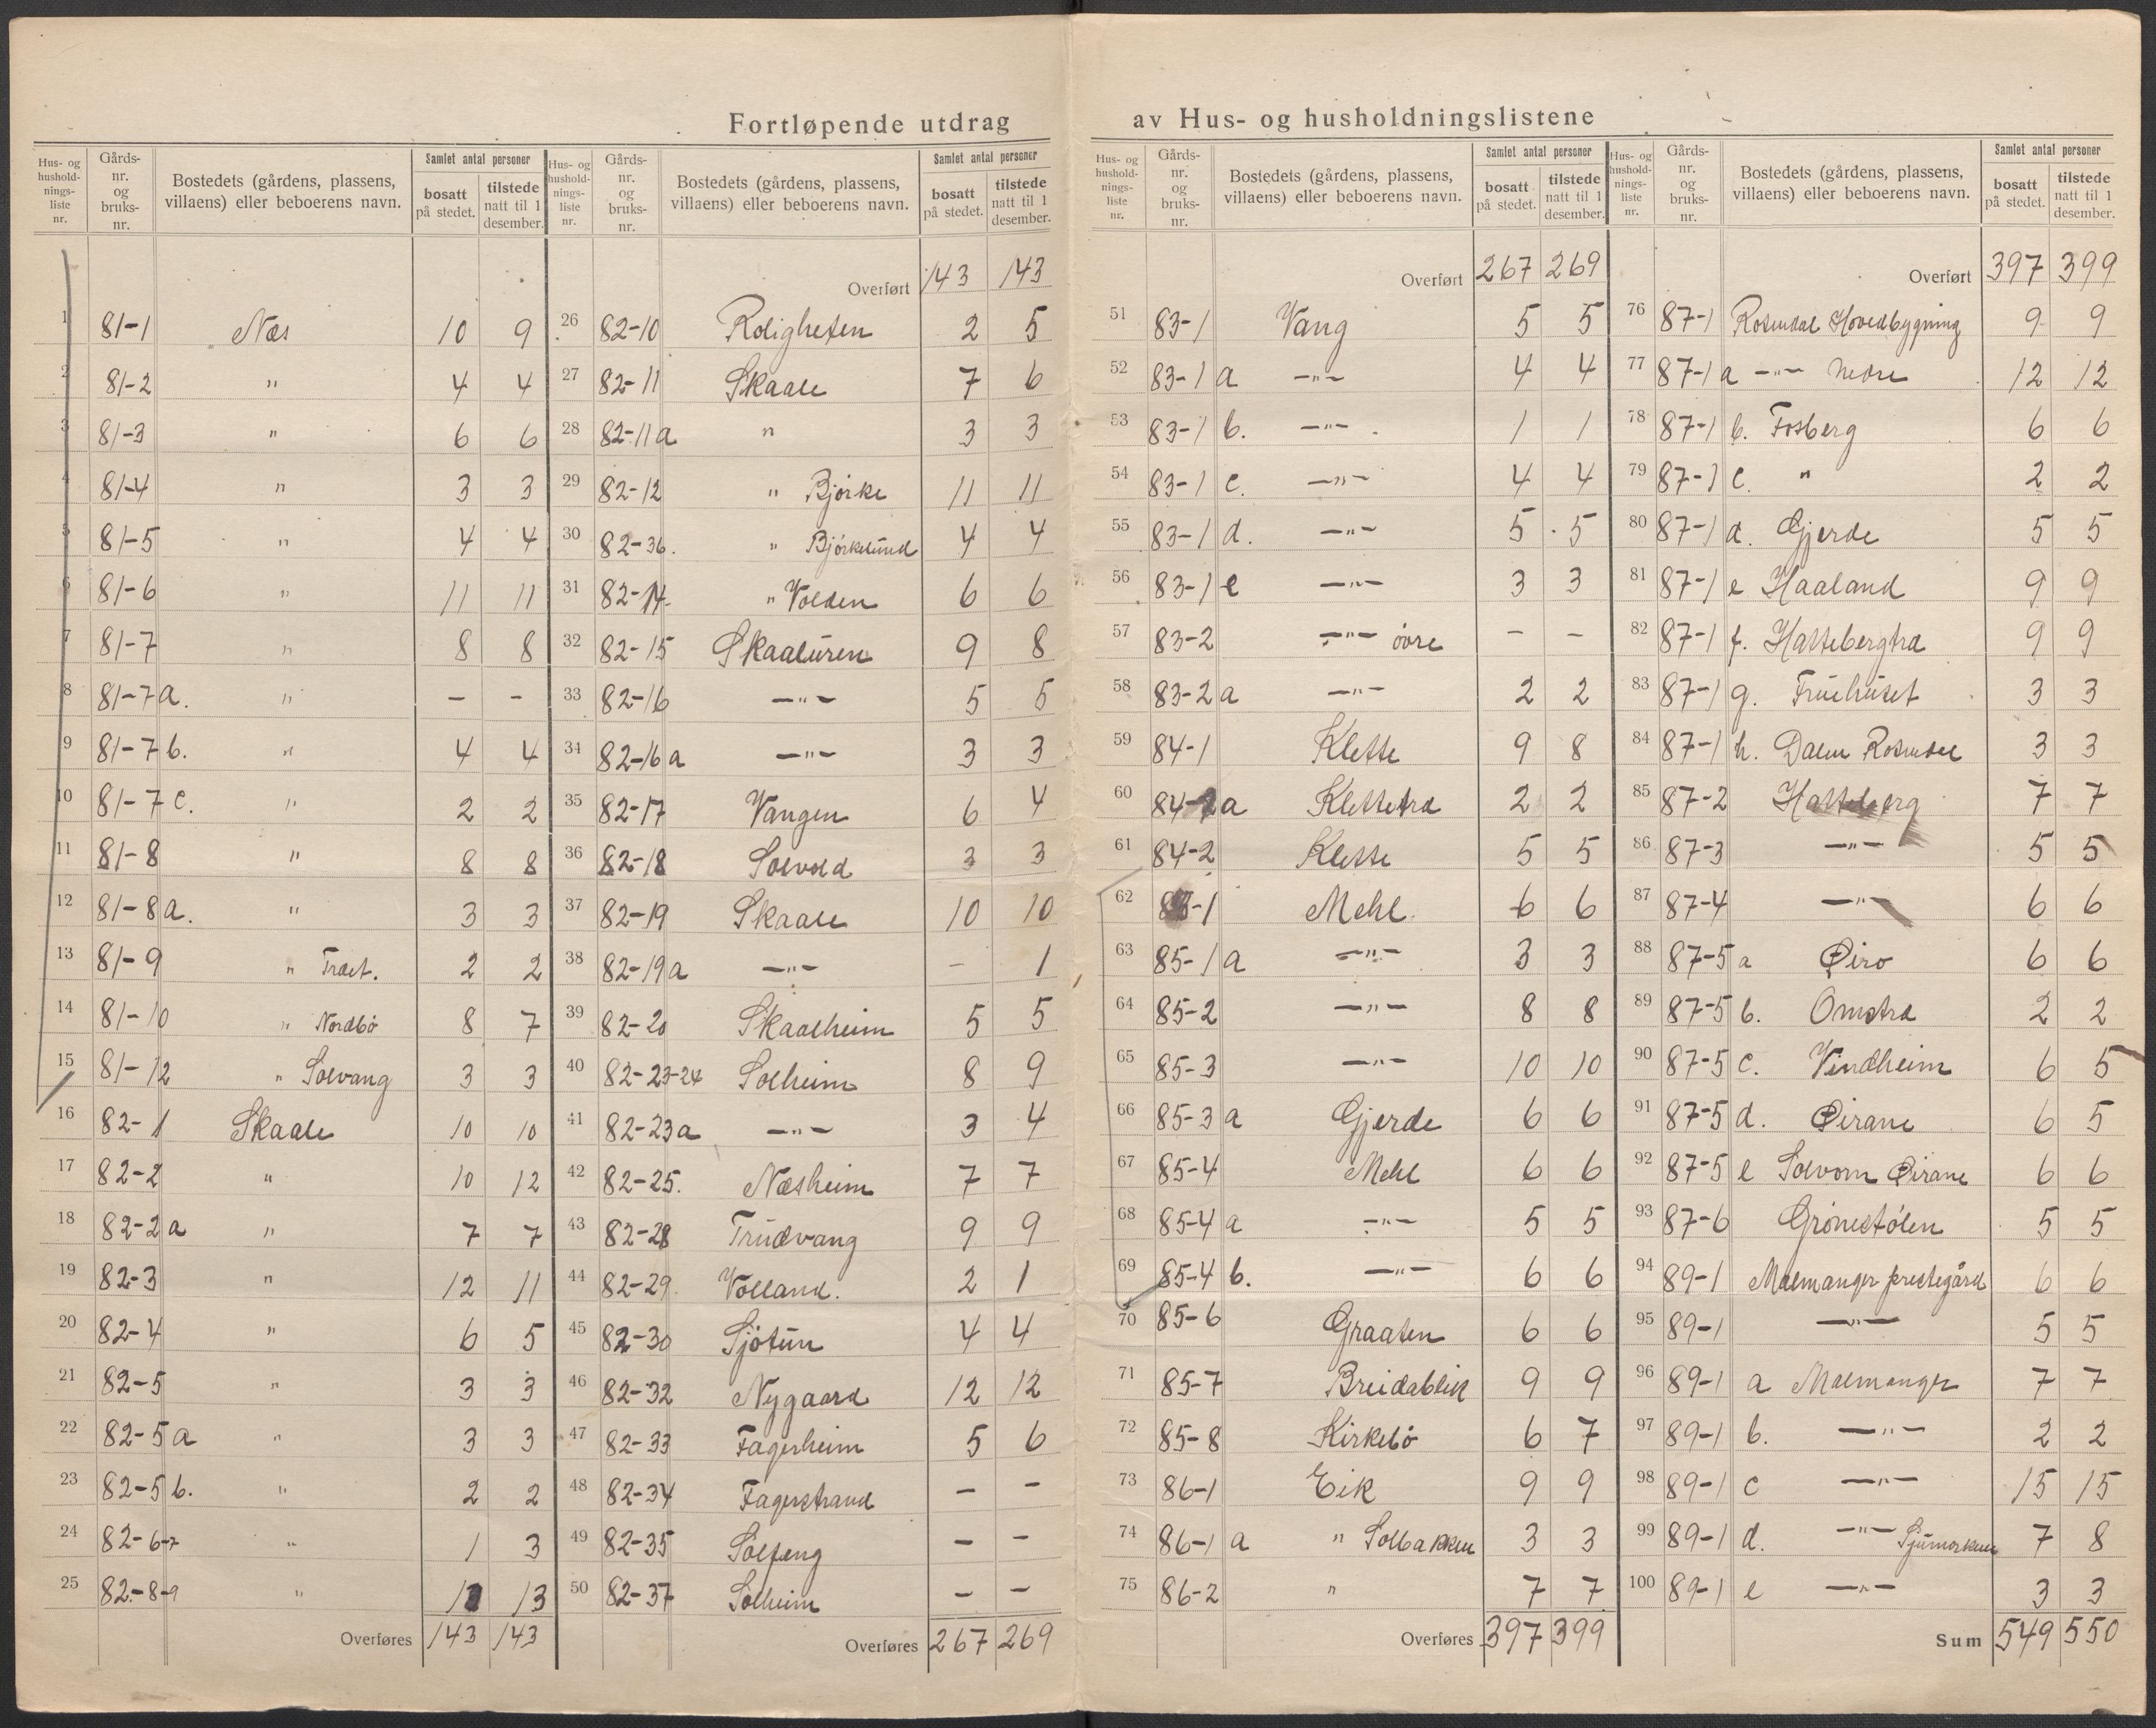 Fortløpende utdrag av Hus- og husholdningslistene
Hus- og hushold-nings-liste nr. Gårds-nr. og bruks-nr. Bostedets (gårdens, plassens, villaens) eller beboerens navn. Samlet antal personer bosatt på stedet. tilstede natt til 1 desember.
1 81-1 Næs 10 9
2 81-2 " 4 4
3 81-3 " 6 6
4 81-4 " 3 3
5 81-5 " 4 4
6 81-6 " 11 11
7 81-7 " 8 8
8 81-7 a. " - -
9 81-7 b. " 4 4
10 81-7 c. " 2 2
11 81-8 " 8 8
12 81-8 a. " 3 3
13 81-9 " Træt. 2 2
14 81-10 " Nordbø 8 7
15 81-12 " Solvang 3 3
16 82-1 Skaale 10 10
17 82-2 " 10 12
18 82-2 a " 7 7
19 82-3 " 12 11
20 82-4 " 6 5
21 82-5 " 3 3
22 82-5 a " 3 3
23 82-5 b. " 2 2
24 82-6-7 " 1 3
25 82-8-9 " 13
Overføres 143 143
Hus- og hushold-nings-liste nr. Gårds-nr. og bruks-nr. Bostedets (gårdens, plassens, villaens) eller beboerens navn. Samlet antal personer bosatt på stedet. tilstede natt til 1 desember.
Overført 143 143
26 82-10 Roligheten 2 5
27 82-11 Skaale 7 6
28 82-11 a " 3 3
29 82-12 " Bjørke 11 11
30 82-36. " Bjørkelund 4 4
31 82-14. " Volden 6 6
32 82-15 Skaaluren 9 8
33 82-16 -"- 5 5
34 82-16 a -"- 3 3
35 82-17 Vangen 6 4
36 82-18 Solvold 3 3
37 82-19 Skaale 10 10
38 82-19 a -"- - 1
39 82-20 Skaalheim 5 5
40 82-23-24 Solheim 8 9
41 82-23 a -"- 3 4
42 82-25. Næsheim 7 7
43 82-28 Trudvang 9 9
44 82-29. Volland. 2 1
45 82-30 Sjøtun 4 4
46 82-32 Nygaard 12 12
47 82-33 Fagerheim 5 6
48 82-34 Fagerstrand - -
49 82-35 Solfeng - -
50 82-37 Solheim - -
Overføres 267 269
Hus- og hushold-nings-liste nr. Gårds-nr. og bruks-nr. Bostedets (gårdens, plassens, villaens) eller beboerens navn. Samlet antal personer bosatt på stedet. tilstede natt til 1 desember.
Overført 267 269
51 83-1 Vang 5 5
52 83-1 a -"- 4 4
53 83-1 b. -"- 1 1
54 83-1 c. -"- 4 4
55 83-1 d. -"- 5 5
56 83-1 e -"- 3 3
57 83-2 -"- øvre - -
58 83-2 a -"- 2 2
59 84-1 Klette 9 8
60 84-1 a Klettetræ 2 2
61 84-2 Klette 5 5
62 85-1 Mehl 6 6
63 85-1 a -"- 3 3
64 85-2 -"- 8 8
65 85-3 -"- 10 10
66 85-3 a Gjerde 6 6
67 85-4 Mehl 6 6
68 85-4 a -"- 5 5
69 85-4 b. -"- 6 6
70 85-6 Graaten 6 6
71 85-7 Breidablik 9 9
72 85-8 Kirkebø 6 7
73 86-1 Eik 9 9
74 86-1 a " Solbakken 3 3
75 86-2 " 7 7
Overføres 397 399
Hus- og hushold-nings-liste nr. Gårds-nr. og bruks-nr. Bostedets (gårdens, plassens, villaens) eller beboerens navn. Samlet antal personer bosatt på stedet. tilstede natt til 1 desember.
Overført 397 399
76 87-1 Rosendal Hovedbygning 9 9
77 87-1 a -"- Nedre 12 12
78 87-1 b. Fosberg 6 6
79 87-1 c. " 2 2
80 87-1 d. Gjerde 5 5
81 87-1 e Haaland 9 9
82 87-1 f. Hattebergtræ 9 9
83 87-1 g. Fruehuset 3 3
84 87-1 h. Dalen Rosendal 3 3
85 87-2 Hatteberg 7 7
86 87-3 -"- 5 5
87 87-4 -"- 6 6
88 87-5 a Øiro 6 6
89 87-5 b. Omstræ 2 2
90 87-5 c. Vindheim 6 5
91 87-5 d. Øirane 6 5
92 87-5 e Solvorn Øirane 6 6
93 87-6 Grønestølen 5 5
94 89-1 Malmanger prestegård 6 6
95 89-1 -"- 5 5
96 89-1 a Malmanger 7 7
97 89-1 b. -"- 2 2
98 89-1 c -"- 15 15
99 89-1 d. -"- 7 8
100 89-1 e -"- 3 3
Sum 549 550